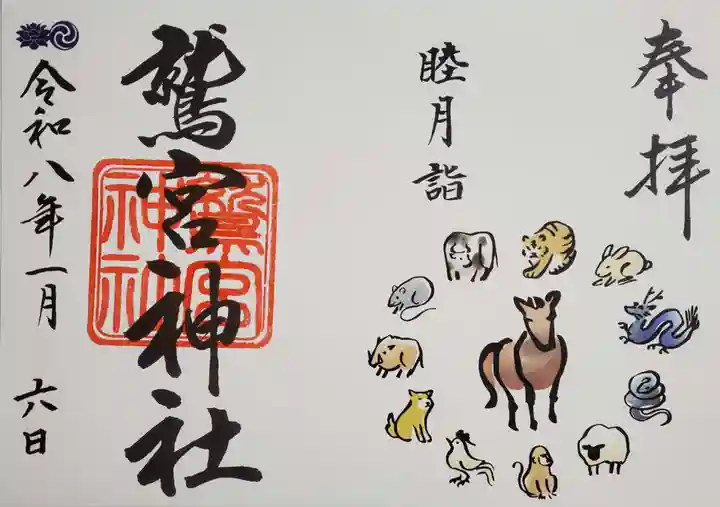 奉拝
睦月詣
鷲宮神社
鷲宮
神社
令和八年一月 六日